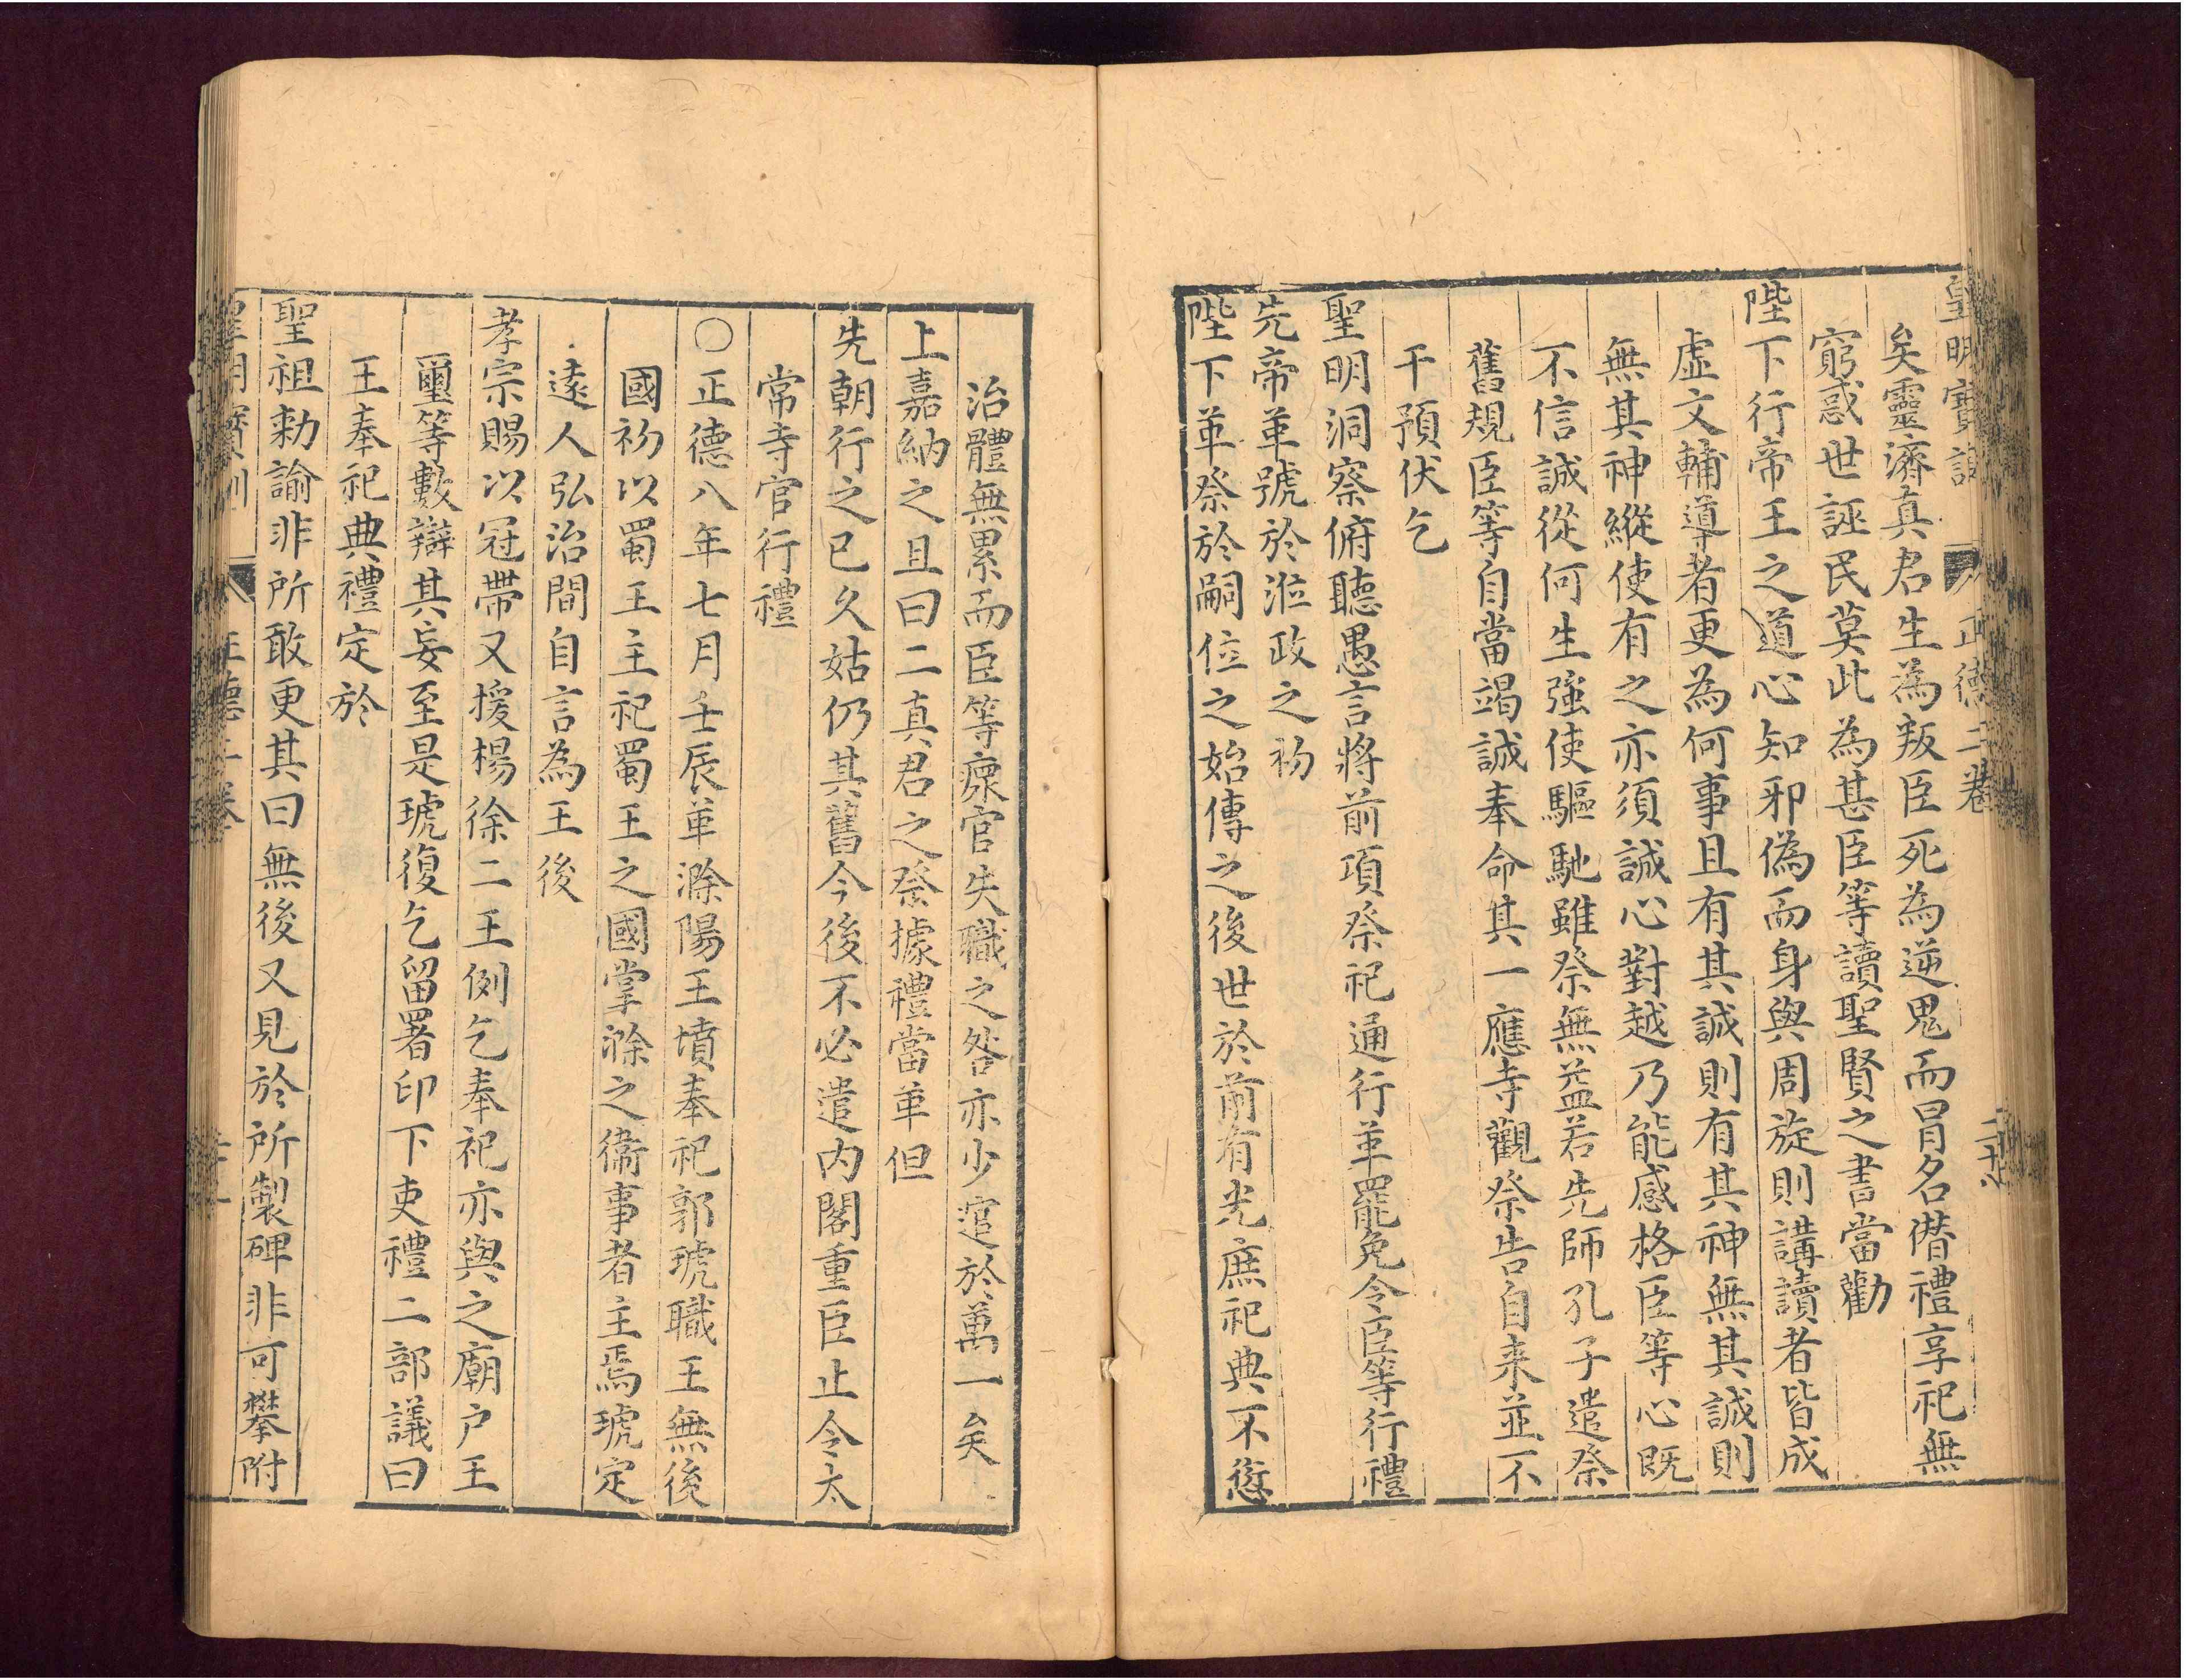 皇明寶訓 正德二卷
矣靈濟真君生為叛臣死為逆鬼而冒名僭禮享祀無
窮惑世誣民莫此為甚臣等讀聖賢之書當勸
陛下行帝王之道心知邪偽而身與周旋則講讀者皆成
虛文輔導者更為何事且有其誠則有其神無其誠則
無其神縱使有之亦須誠心對越乃能感格臣等心既
不信誠從何生強使驅馳雖祭無益若先師孔子遣祭
舊規臣等自當竭誠奉命其一應寺觀祭告自来並不
干預伏乞
聖明洞察俯聽愚言將前項祭祀通行革罷免令臣等行禮
先帝革號於涖政之初
陛下革祭於嗣位之始傳之後世於前有光庶祀典不愆
治體無累而臣等瘝官失職之咎亦少逭於萬一矣
上嘉納之且曰二真君之祭據禮當革但
先朝行之已久姑仍其舊今後不必遣内閣重臣止令太
常寺官行禮
○正德八年七月壬辰革滁陽王墳奉祀郭琥職王無後
國初以蜀王主祀蜀王之國掌滁之衛事者主焉琥定
遠人弘治間自言為王後
孝宗賜以冠帶又援楊徐二王例乞奉祀亦與之廟户王
璽等數辯其妄至是琥復乞留署印下吏禮二部議曰
王奉祀典禮定於
聖祖勑諭非所敢更其曰無後又見於所製碑非可攀附
皇明寶訓 正德二卷